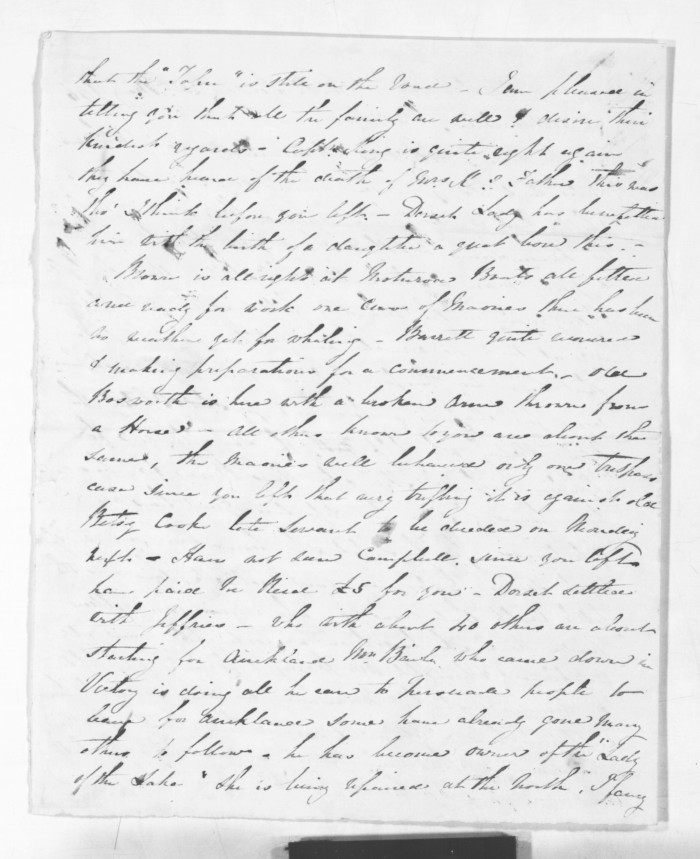 that the " " is still on the road - I am pleased in
telling you that all the family are well & desire their
kindest regards - Capt. King is quite right again
they have heard of the death of Mrs K's Father this was
tho' I think before you left. - Dorset Lady has
him with the birth of a daughter a great this. -
Brown is all right at Moturoa Boats all fitted
and ready for work one crew of Maories there has been
no weather yet for whaling - Barrett quite recovered
& making preparations for a commencement - old
Bosworth is here with a broken arm thrown from
a Horse - all others known to you are about the
same, the Maories well behaved only one trespass
case since you left that very trifling it is against old
Betsy Cooke late Servant to be decided on Monday
next - Have not seen Campbell since you left
have paid £5 for you - Dorset settled
with Jeffries - who with about 40 others are about
starting for Auckland Mr who came down in
Victory is doing all he can to Persuade people to
leave for Auckland some have already gone Many
others to follow - he has become owner of the "Lady
of the Lake" She is being repaired at the North, I fancy